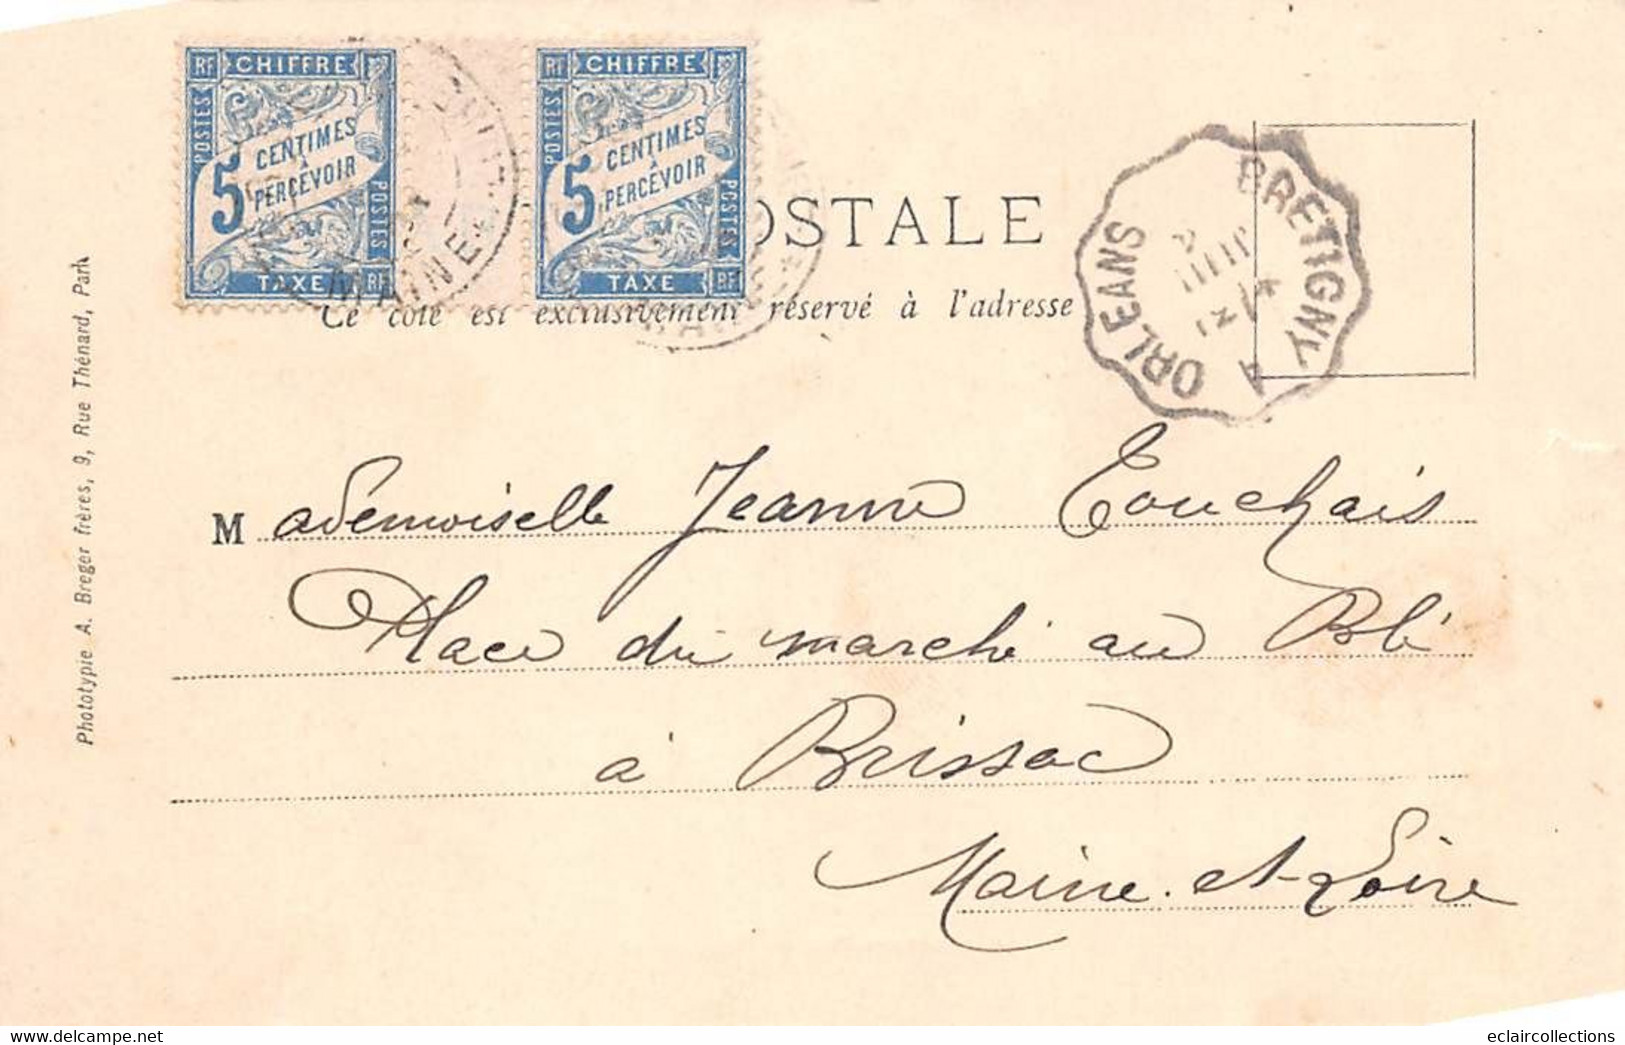 RF CHIFFRE
POSTES
5 CENTIMES
À
PERCEVOIR
POSTES
TAXE RF
RF CHIFFRE
POSTES
5 CENTIMES
À
PERCEVOIR
POSTES
TAXE RF
MAINE
OSTALE
Ce côté est exclusivement réservé à l'adresse
BRETIGNY A ORLEANS
Mademoiselle Jeanne Touchais
Place du marché au Blé
à Brissac
Maine-et-Loire
Phototypie A. Breger frères, 9, Rue Thénard, Paris
eclaircollections